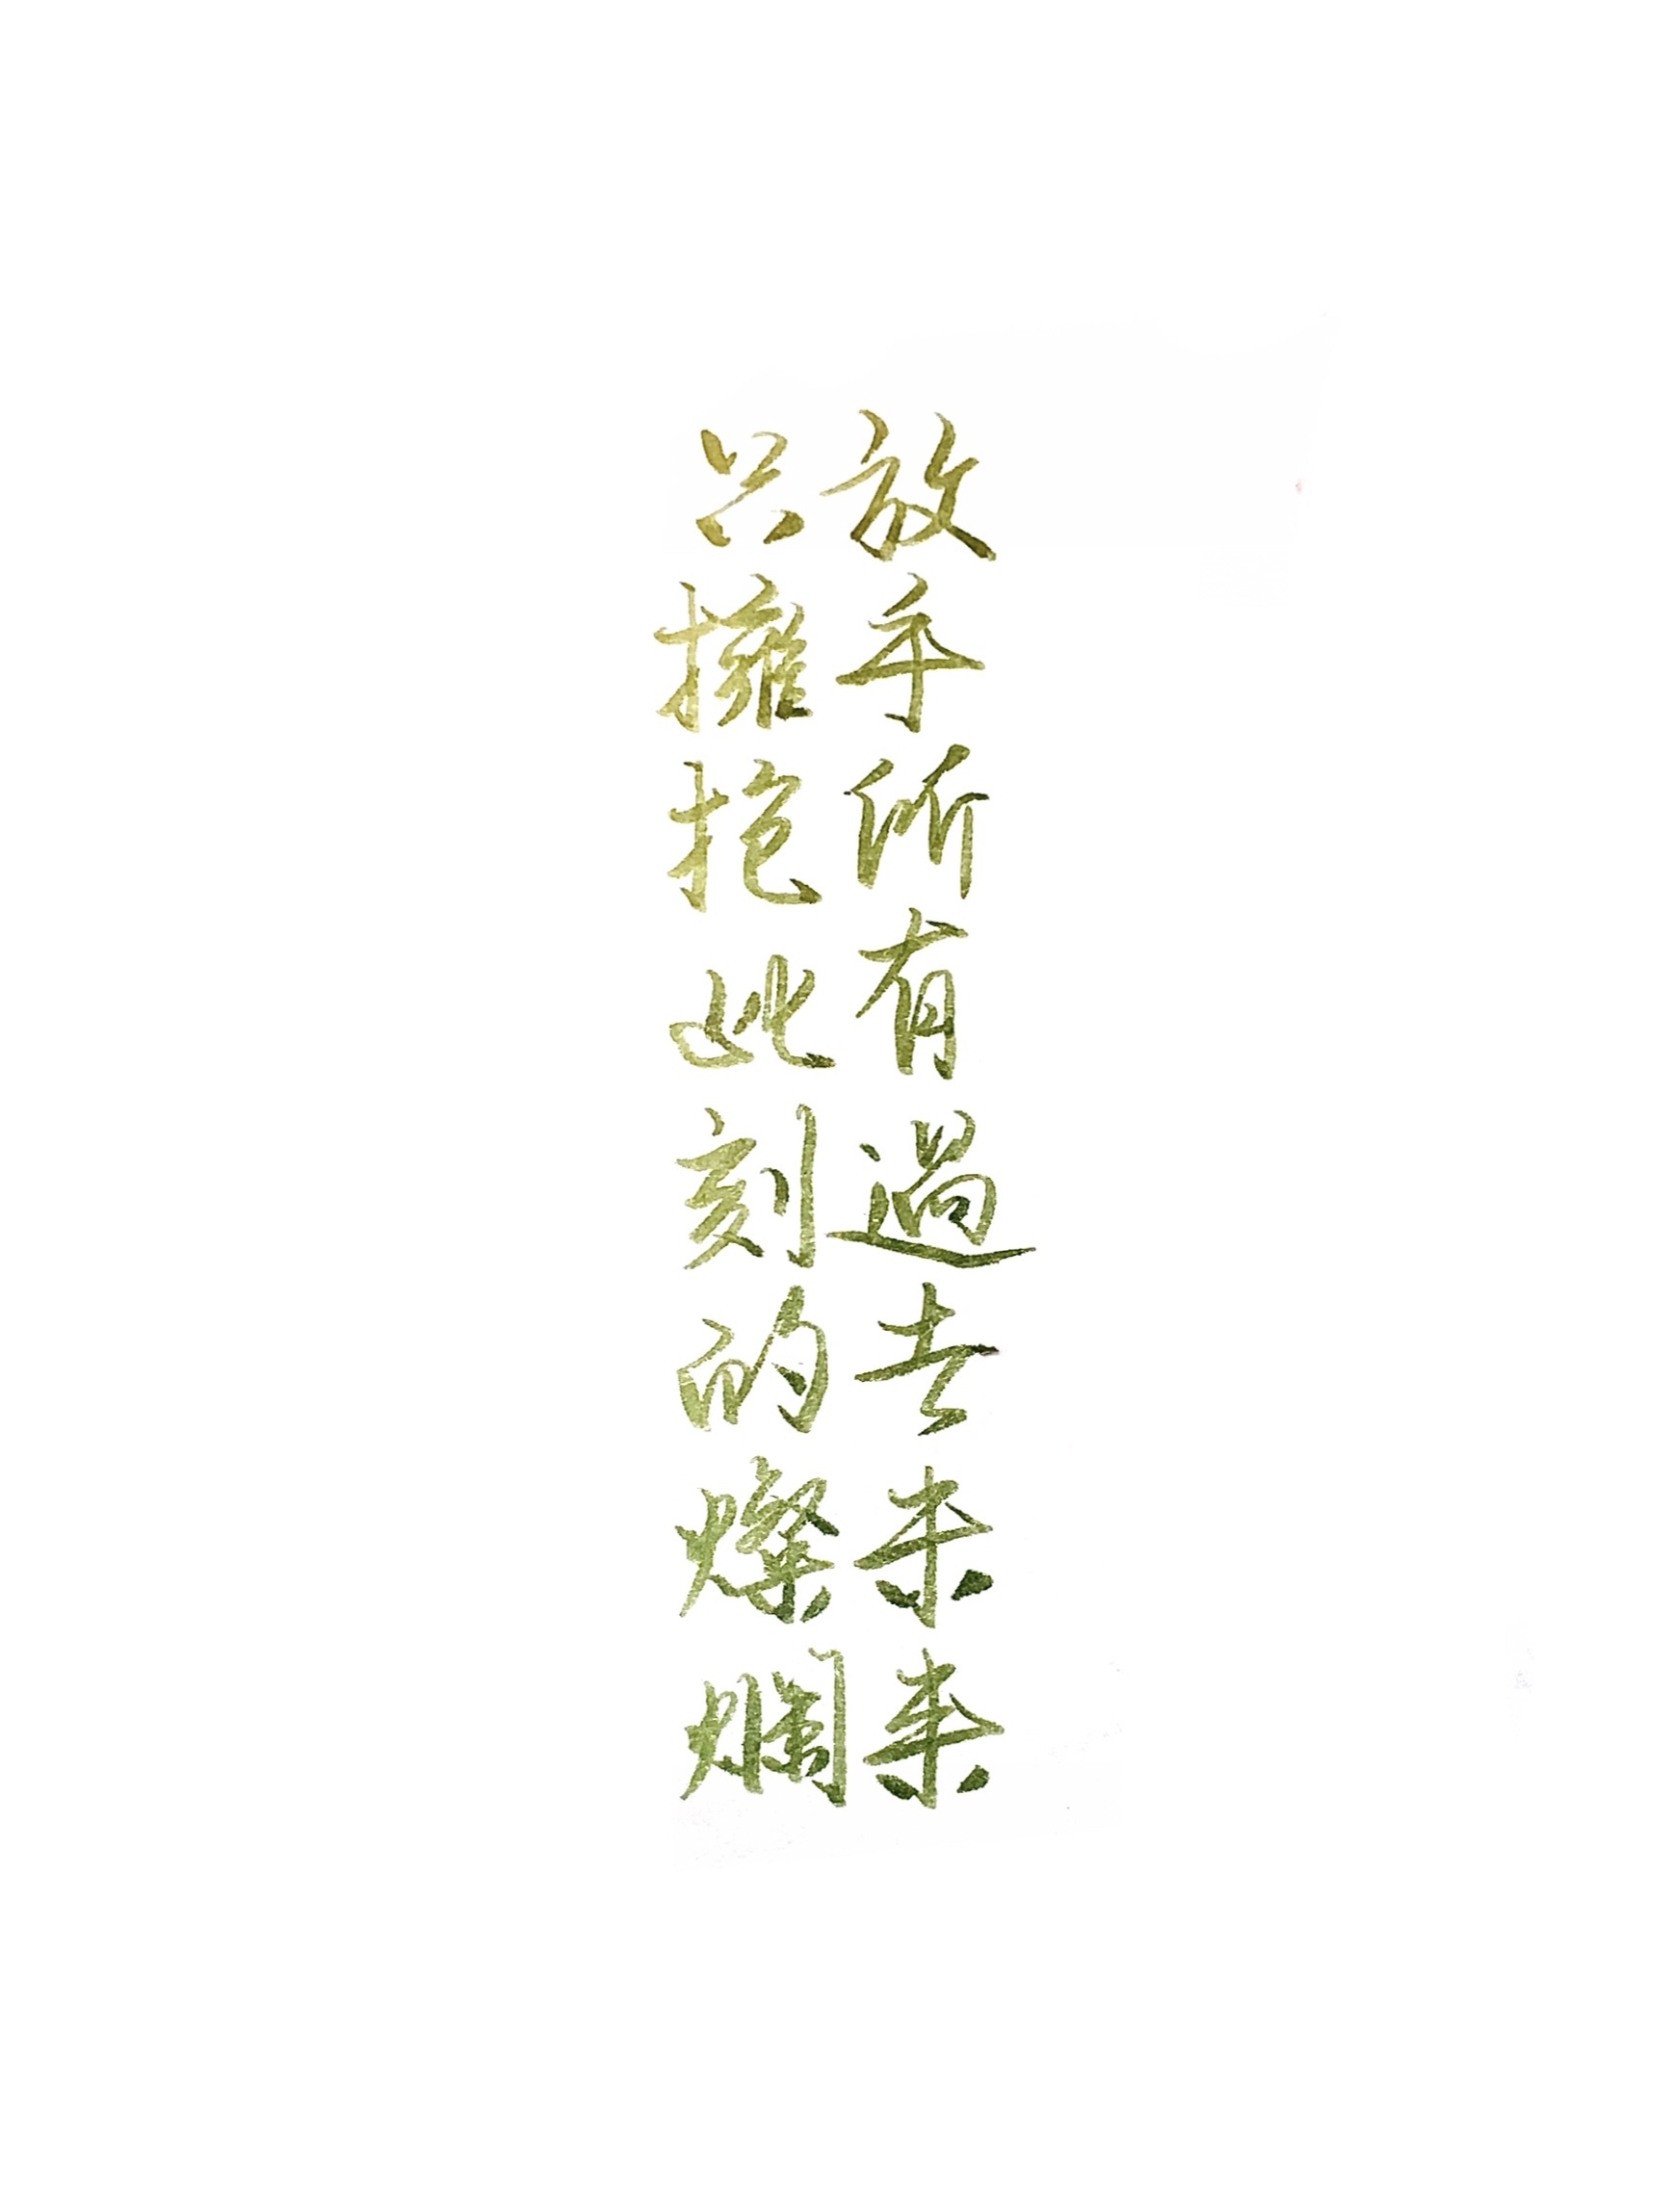 放手所有過去未来
只擁抱此刻的燦爛